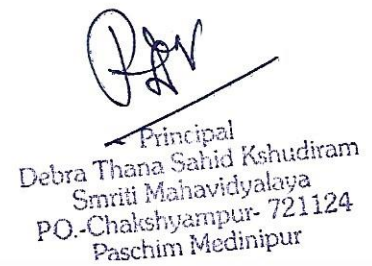 Principal
Debra Thana Sahid Kshudiram
Smriti Mahavidyalaya
PO.-Chakshyampur- 721124
Paschim Medinipur